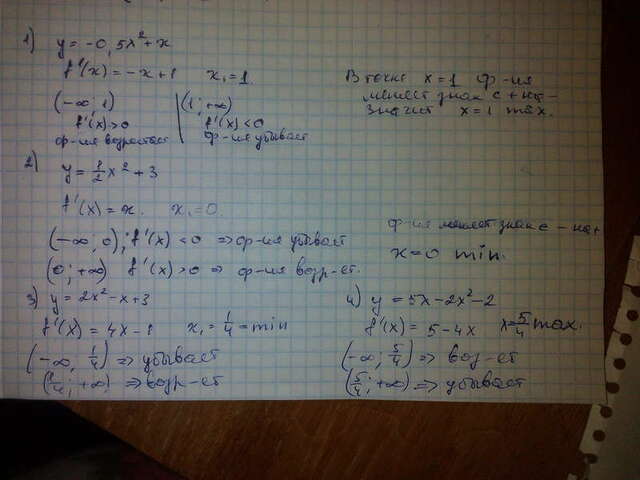 1) y = -0,5x² + x
f'(x) = -x + 1 x₁ = 1.
(-∞; 1) (1; +∞)
f'(x) > 0 f'(x) < 0
ф-ия возрастает ф-ия убывает
В точке x = 1 ф-ия
меняет знак с + на -
значит x = 1 max.
2) y = 1/2 x² + 3
f'(x) = x. x₁ = 0.
(-∞; 0); f'(x) < 0 ⇒ ф-ия убывает
(0; +∞) f'(x) > 0 ⇒ ф-ия возр-ет.
ф-ия меняет знак с - на +
x = 0 min.
3) y = 2x² - x + 3
f'(x) = 4x - 1 x₁ = 1/4 = min
(-∞, 1/4) ⇒ убывает
(1/4; +∞) ⇒ возр-ет
4) y = 5x - 2x² - 2
f'(x) = 5 - 4x x = 5/4 max.
(-∞; 5/4) ⇒ воз-ет
(5/4; +∞) ⇒ убывает